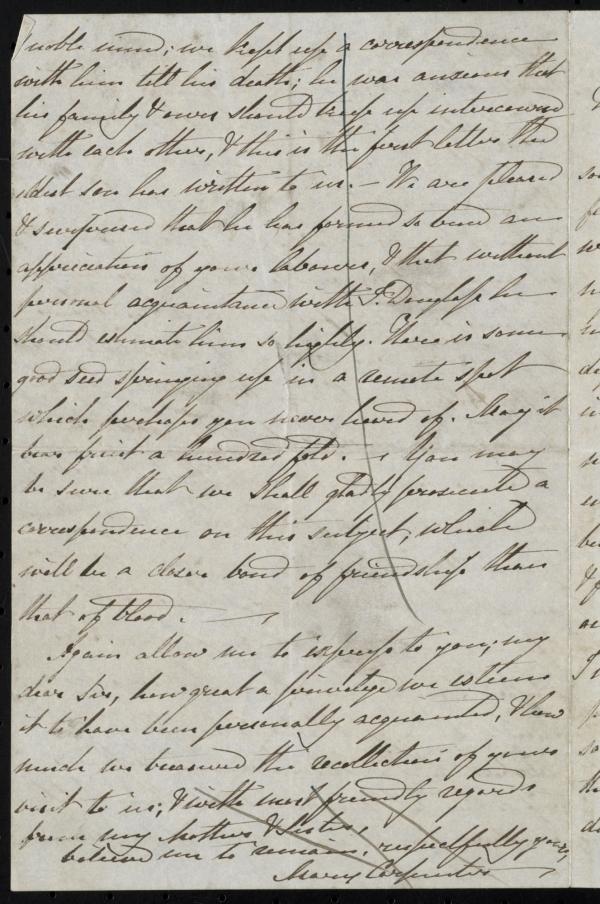 noble mind; we kept up a correspondence
with him till his death; he was anxious that
his family & ours should keep up intercourse
with each other, & this is the first letter the
eldest son has written to us. — We are pleased
& surprised that he has formed so kind an
appreciation of your labours, & that without
personal acquaintance with F. Douglass he
should estimate him so highly. There is some
good seed springing up in a remote spot
which perhaps you never heard of. May it
bear fruit a hundred fold. — You may
be sure that we shall gladly prosecute a
correspondence on this subject, which
will be a closer bond of friendship than
that of blood. —
Again allow me to express to you, my
dear Sir, how great a privilege we esteem
it to have been personally acquainted, & how
much we treasured the recollection of your
visit to us; & with most friendly regards
from my Mother & Sister,
believe me to remain, respectfully yours,
Mary Carpenter